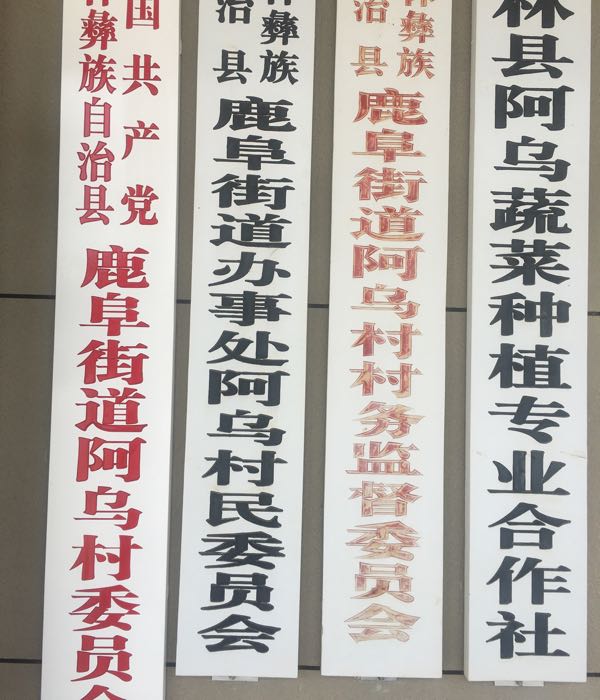 国共产党
彝族自治县
鹿阜街道阿乌村委员会
彝族
治县
鹿阜街道办事处阿乌村民委员会
彝族
治县
鹿阜街道阿乌村村务监督委员会
林县阿乌蔬菜种植专业合作社